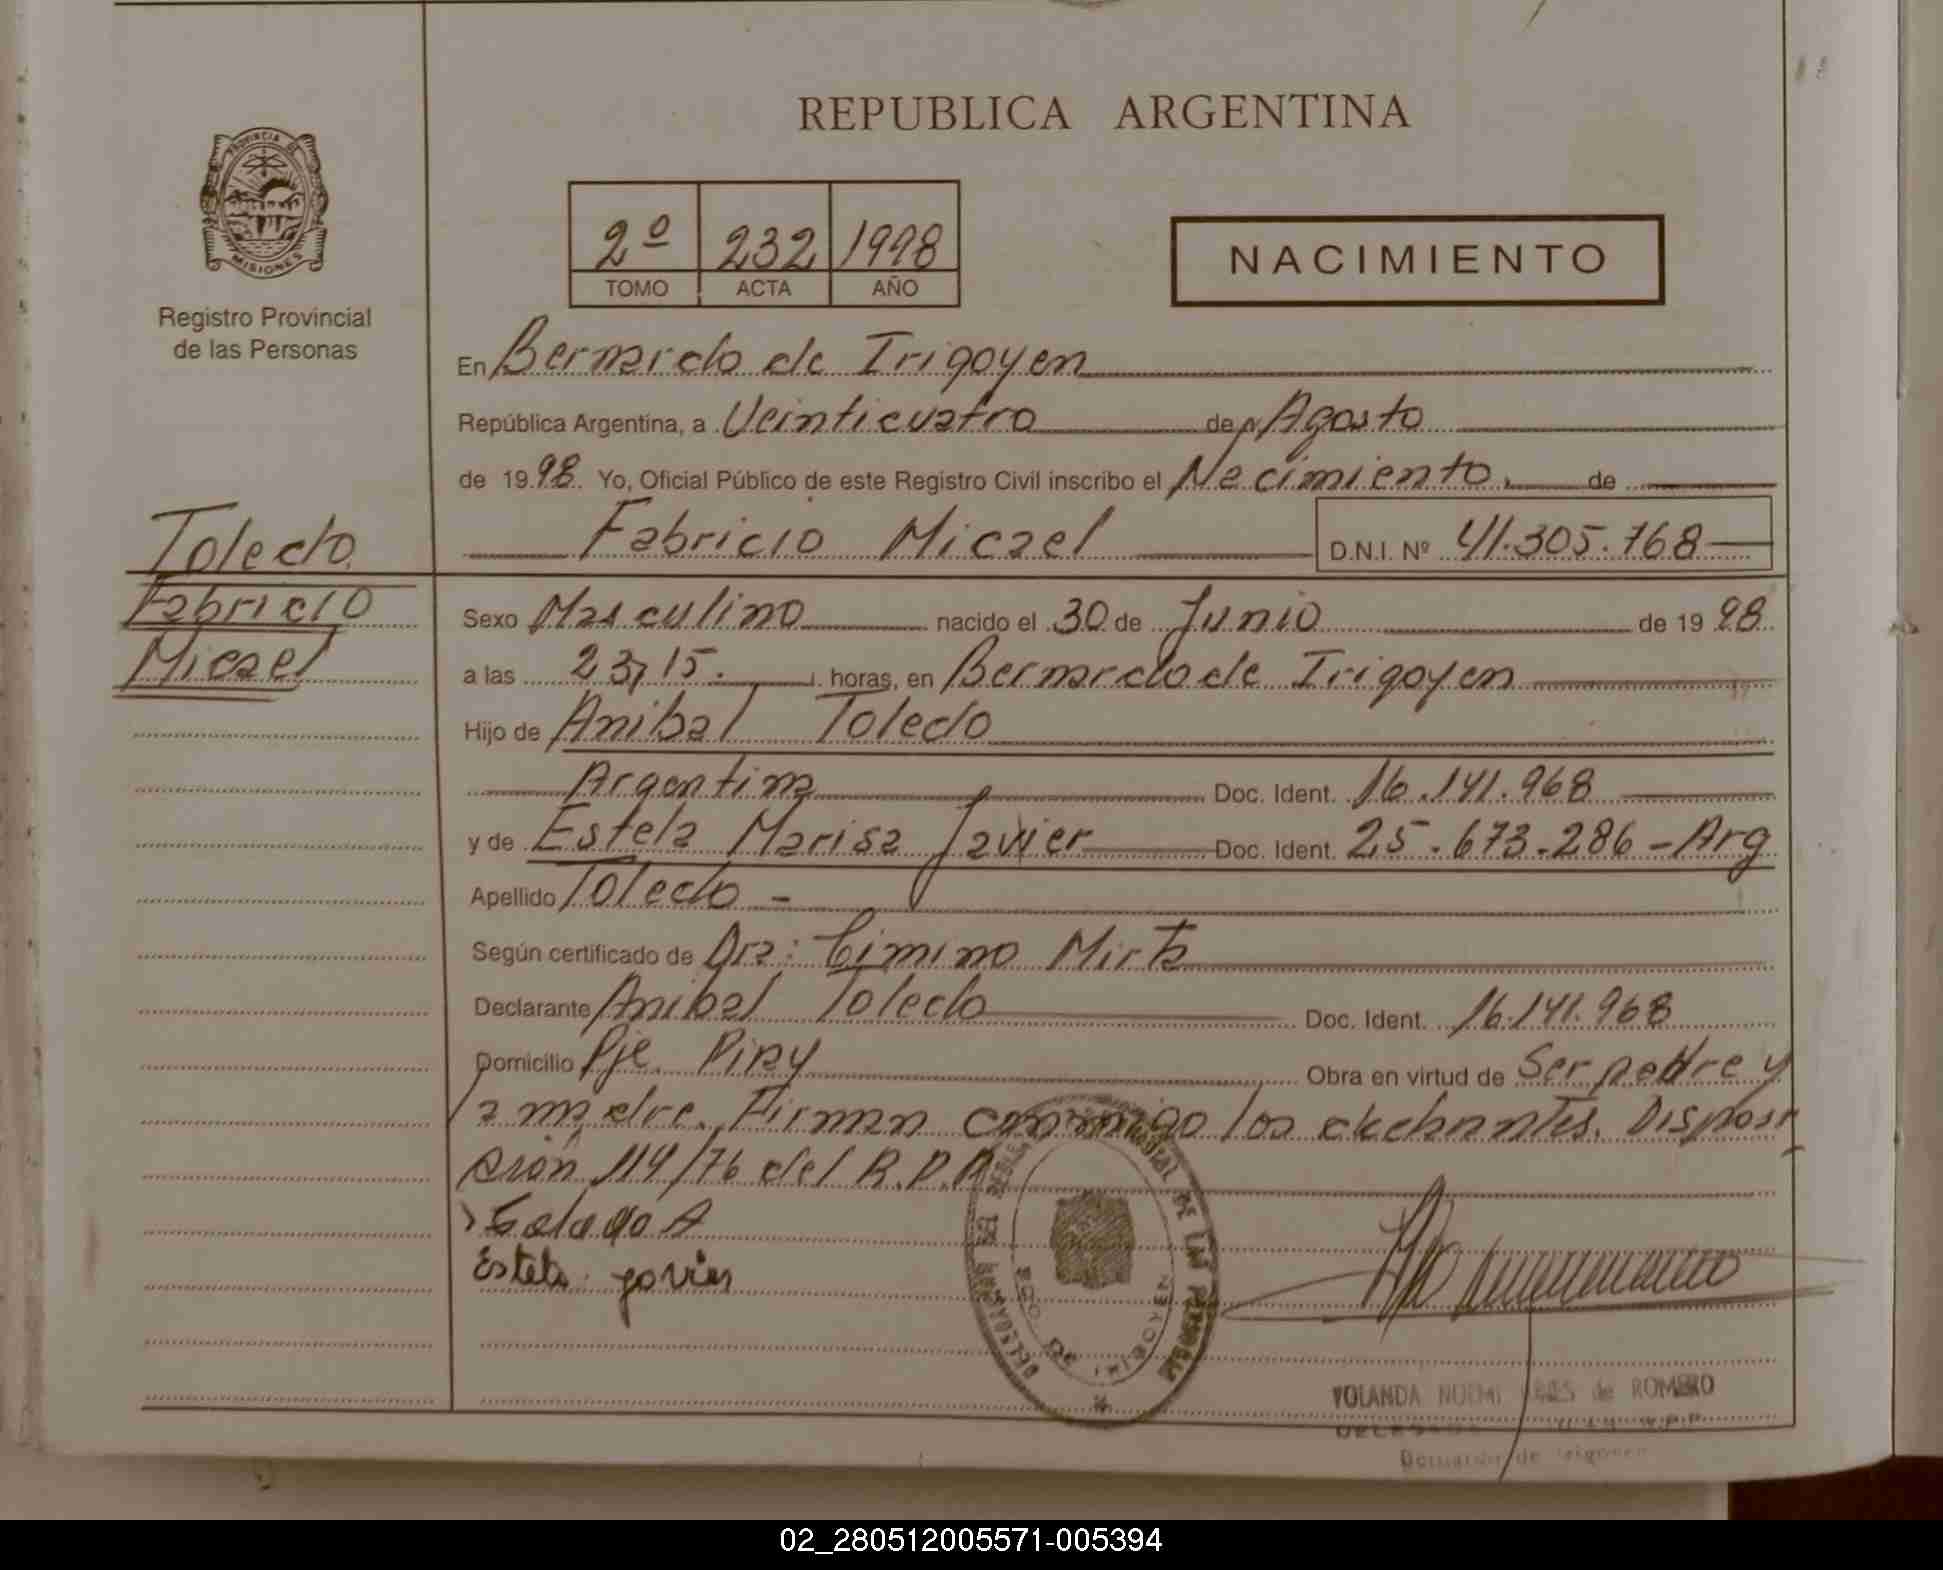 REPUBLICA ARGENTINA
PROVINCIA DE
MISIONES
Registro Provincial
de las Personas
2º 232 1998
TOMO ACTA AÑO
NACIMIENTO
En Bernardo de Irigoyen
República Argentina, a Veinticuatro de Agosto
de 1998. Yo, Oficial Público de este Registro Civil inscribo el Nacimiento de
Fabricio Micael D.N.I. Nº 41.305.768
Toledo
Fabricio
Micael
Sexo Masculino nacido el 30 de Junio de 1998
a las 23,15. horas, en Bernardo de Irigoyen
Hijo de Anibal Toledo
Argentina Doc. Ident. 16.141.968
y de Estela Marisa Javier Doc. Ident. 25.673.286 - Arg
Apellido Toledo -
Según certificado de Dra: Cimino Mirta
Declarante Anibal Toledo Doc. Ident. 16.141.968
Domicilio Pje. Piray Obra en virtud de Ser padre y
la madre. Firman conmigo los Disposi
ción 114/76 del R.P.P
Estela Javier
DELEGACION DE LAS PERSONAS
BDO DE IRIGOYEN
YOLANDA NOEMI de ROMERO
Bernardo de Irigoyen
02_280512005571-005394